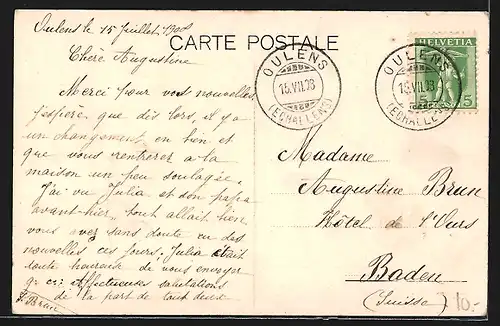 Oulens le 15 Juillet 1908
CARTE POSTALE
Chère Augustine
Merci pour vos nouvelles
j'espère que dès lors, il y a
un changement en bien et
que vous rentrerez à la
maison un peu soulagée.
J'ai vu Julia et son papa
avant-hier, tout allait bien,
vous avez sans doute eu des
nouvelles ces jours. Julia était
toute heureuse de vous envoyer
Affectueuses salutations
de la part de tous deux
Brun
OULENS
15.VII.08
(ECHALLENS)
OULENS
15.VII.08
(ECHALLENS)
HELVETIA
5 5
Madame
Augustine Brun
Hôtel de l'Ours
Baden
(Suisse)
10.-